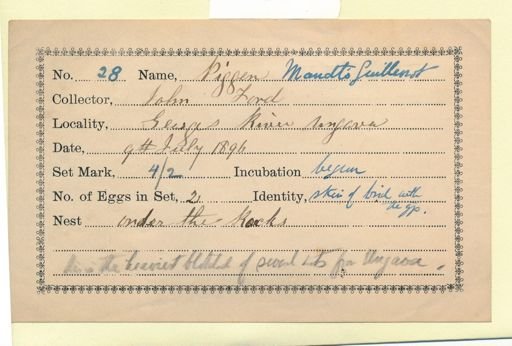 No. 28 Name, Piggen Mandt's Guillemot
Collector, John Ford
Locality, Georges River Ungava
Date, 9th July 1896
Set Mark, 4/2 Incubation begun
No. of Eggs in Set, 2 Identity, skin of bird with
the eggs.
Nest under the Rocks
the heaviest of several sets from Ungava.